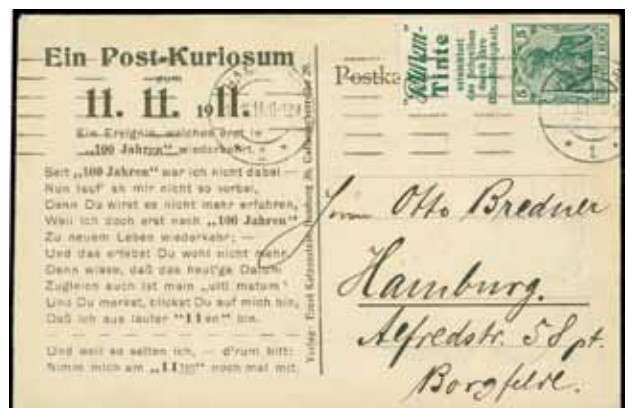 Ein Post-Kuriosum
zum
11. 11. 1911.
Ein Ereignis, welches erst in
„100 Jahren" wiederkehrt.
Seit „100 Jahren" war ich nicht dabei —
Nun lauf' an mir nicht so vorbei,
Denn Du wirst es nicht mehr erfahren,
Weil ich doch erst nach „100 Jahren"
Zu neuem Leben wiederkehr; —
Und das erlebst Du wohl nicht mehr
Denn wisse, daß das heut'ge Datum
Zugleich auch ist mein „ulti matum"
Und Du merkst, blickst Du auf mich hin,
Daß ich aus lauter "11en" bin.
Und weil so selten ich, — d'rum bitt:
Nimm mich am „11ten" noch mal mit.
Verlag: Ernst Hamburg 20,
Postka
Tinte
5
5
Herrn Otto Bredner
Hamburg.
Alfredstr. 58 pt.
Borgfelde.